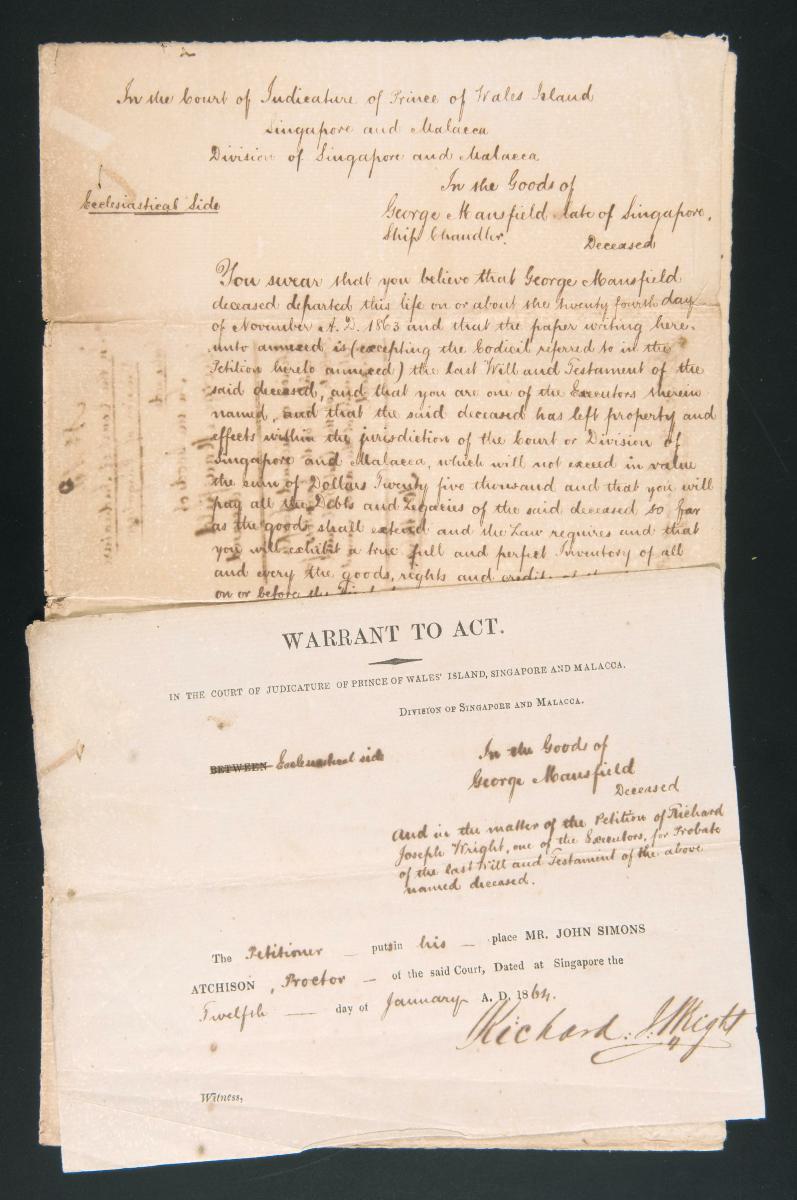 In the Court of Judicature of Prince of Wales Island
Singapore and Malacca
Division of Singapore and Malacca
Ecclesiastical Side
In the Goods of
George Mansfield late of Singapore,
Ship Chandler.
Deceased
You swear that you believe that George Mansfield
deceased departed this life on or about the twenty fourth day
of November A.D. 1863 and that the paper writing here-
unto annexed is (excepting the Codicil referred to in the
Petition hereto annexed) the last Will and Testament of the
said deceased, and that you are one of the Executors therein
named, and that the said deceased has left property and
effects within the jurisdiction of the Court or Division of
Singapore and Malacca, which will not exceed in value
the sum of Dollars Twenty five thousand and that you will
pay all the Debts and Legacies of the said deceased so far
as the goods shall extend and the Law requires and that
you will exhibit a true full and perfect Inventory of all
and every the goods, rights and credits
on or before the
WARRANT TO ACT.
IN THE COURT OF JUDICATURE OF PRINCE OF WALES' ISLAND, SINGAPORE AND MALACCA.
DIVISION OF SINGAPORE AND MALACCA.
BETWEEN Ecclesiastical side
In the Goods of
George Mansfield
Deceased
And in the matter of the Petition of Richard
Joseph Wright, one of the Executors, for Probate
of the last Will and Testament of the above
named deceased.
The Petitioner puts in his place MR. JOHN SIMONS
ATCHISON, Proctor of the said Court, Dated at Singapore the
Twelfth day of January A. D. 1864.
Richard. J. Wright
Witness,